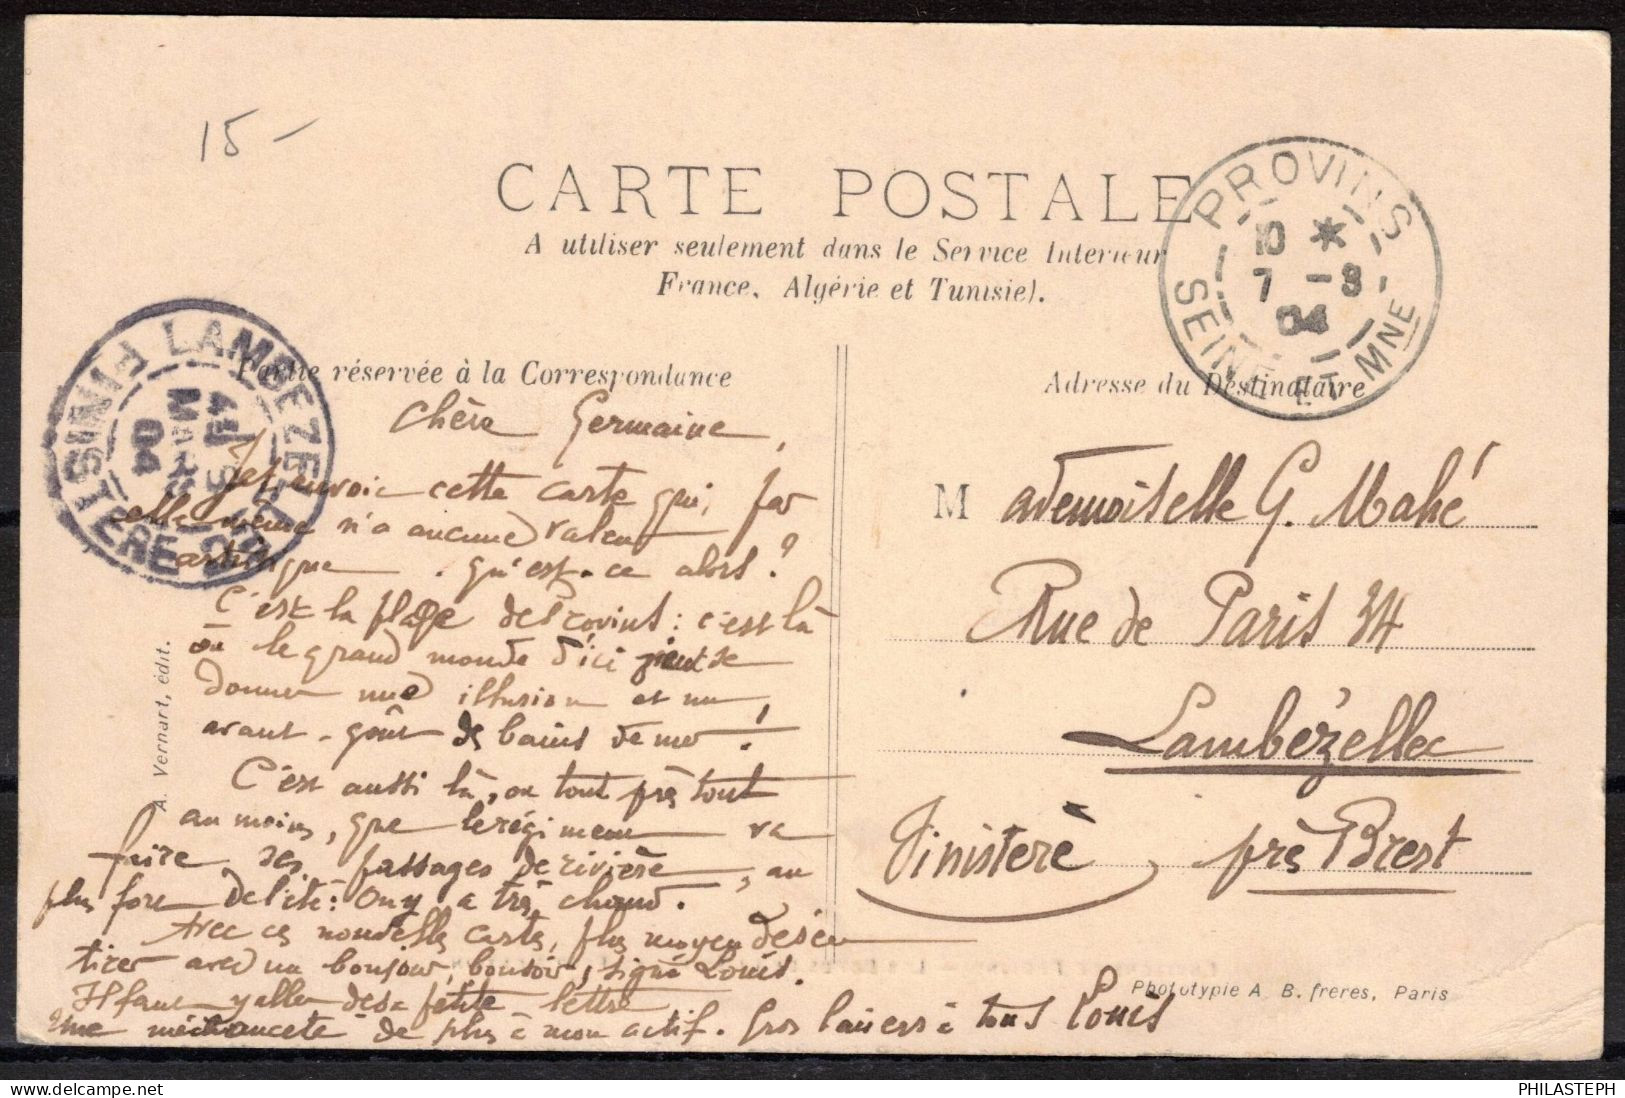 15-
CARTE POSTALE
A utiliser seulement dans le Service Intérieur
France, Algérie et Tunisie).
PROVINS
10 *
7 - 3
04
SEINE ET MNE
LAMBEZELLEC
4E
MARS
04
FINISTERE
Partie réservée à la Correspondance
Adresse du Destinataire
Chère Germaine,
Je t'envoie cette carte qui, par
elle même n'a aucune valeur
artistique. qu'est-ce alors?
C'est la plage de Provins: c'est là
où le grand monde d'ici vient se
donner une illusion et un
avant-goût des bains de mer!
C'est aussi là, ou tout près tout
au moins, que le régiment va
faire ses passages de rivière, au
plus fort de l'été: On y a très chaud.
Avec ces nouvelles cartes, plus moyen de s'en
tirer avec un bonjour, bonsoir, signé Louis.
Il faut y aller de sa petite lettre
Une méchanceté de plus à mon actif. Gros baisers à tous Louis
M ademoiselle G. Mahé
Rue de Paris 34
Lambézellec
Finistère, près Brest
A. Vernart, édit.
Phototypie A. B. frères, Paris
PHILASTEPH